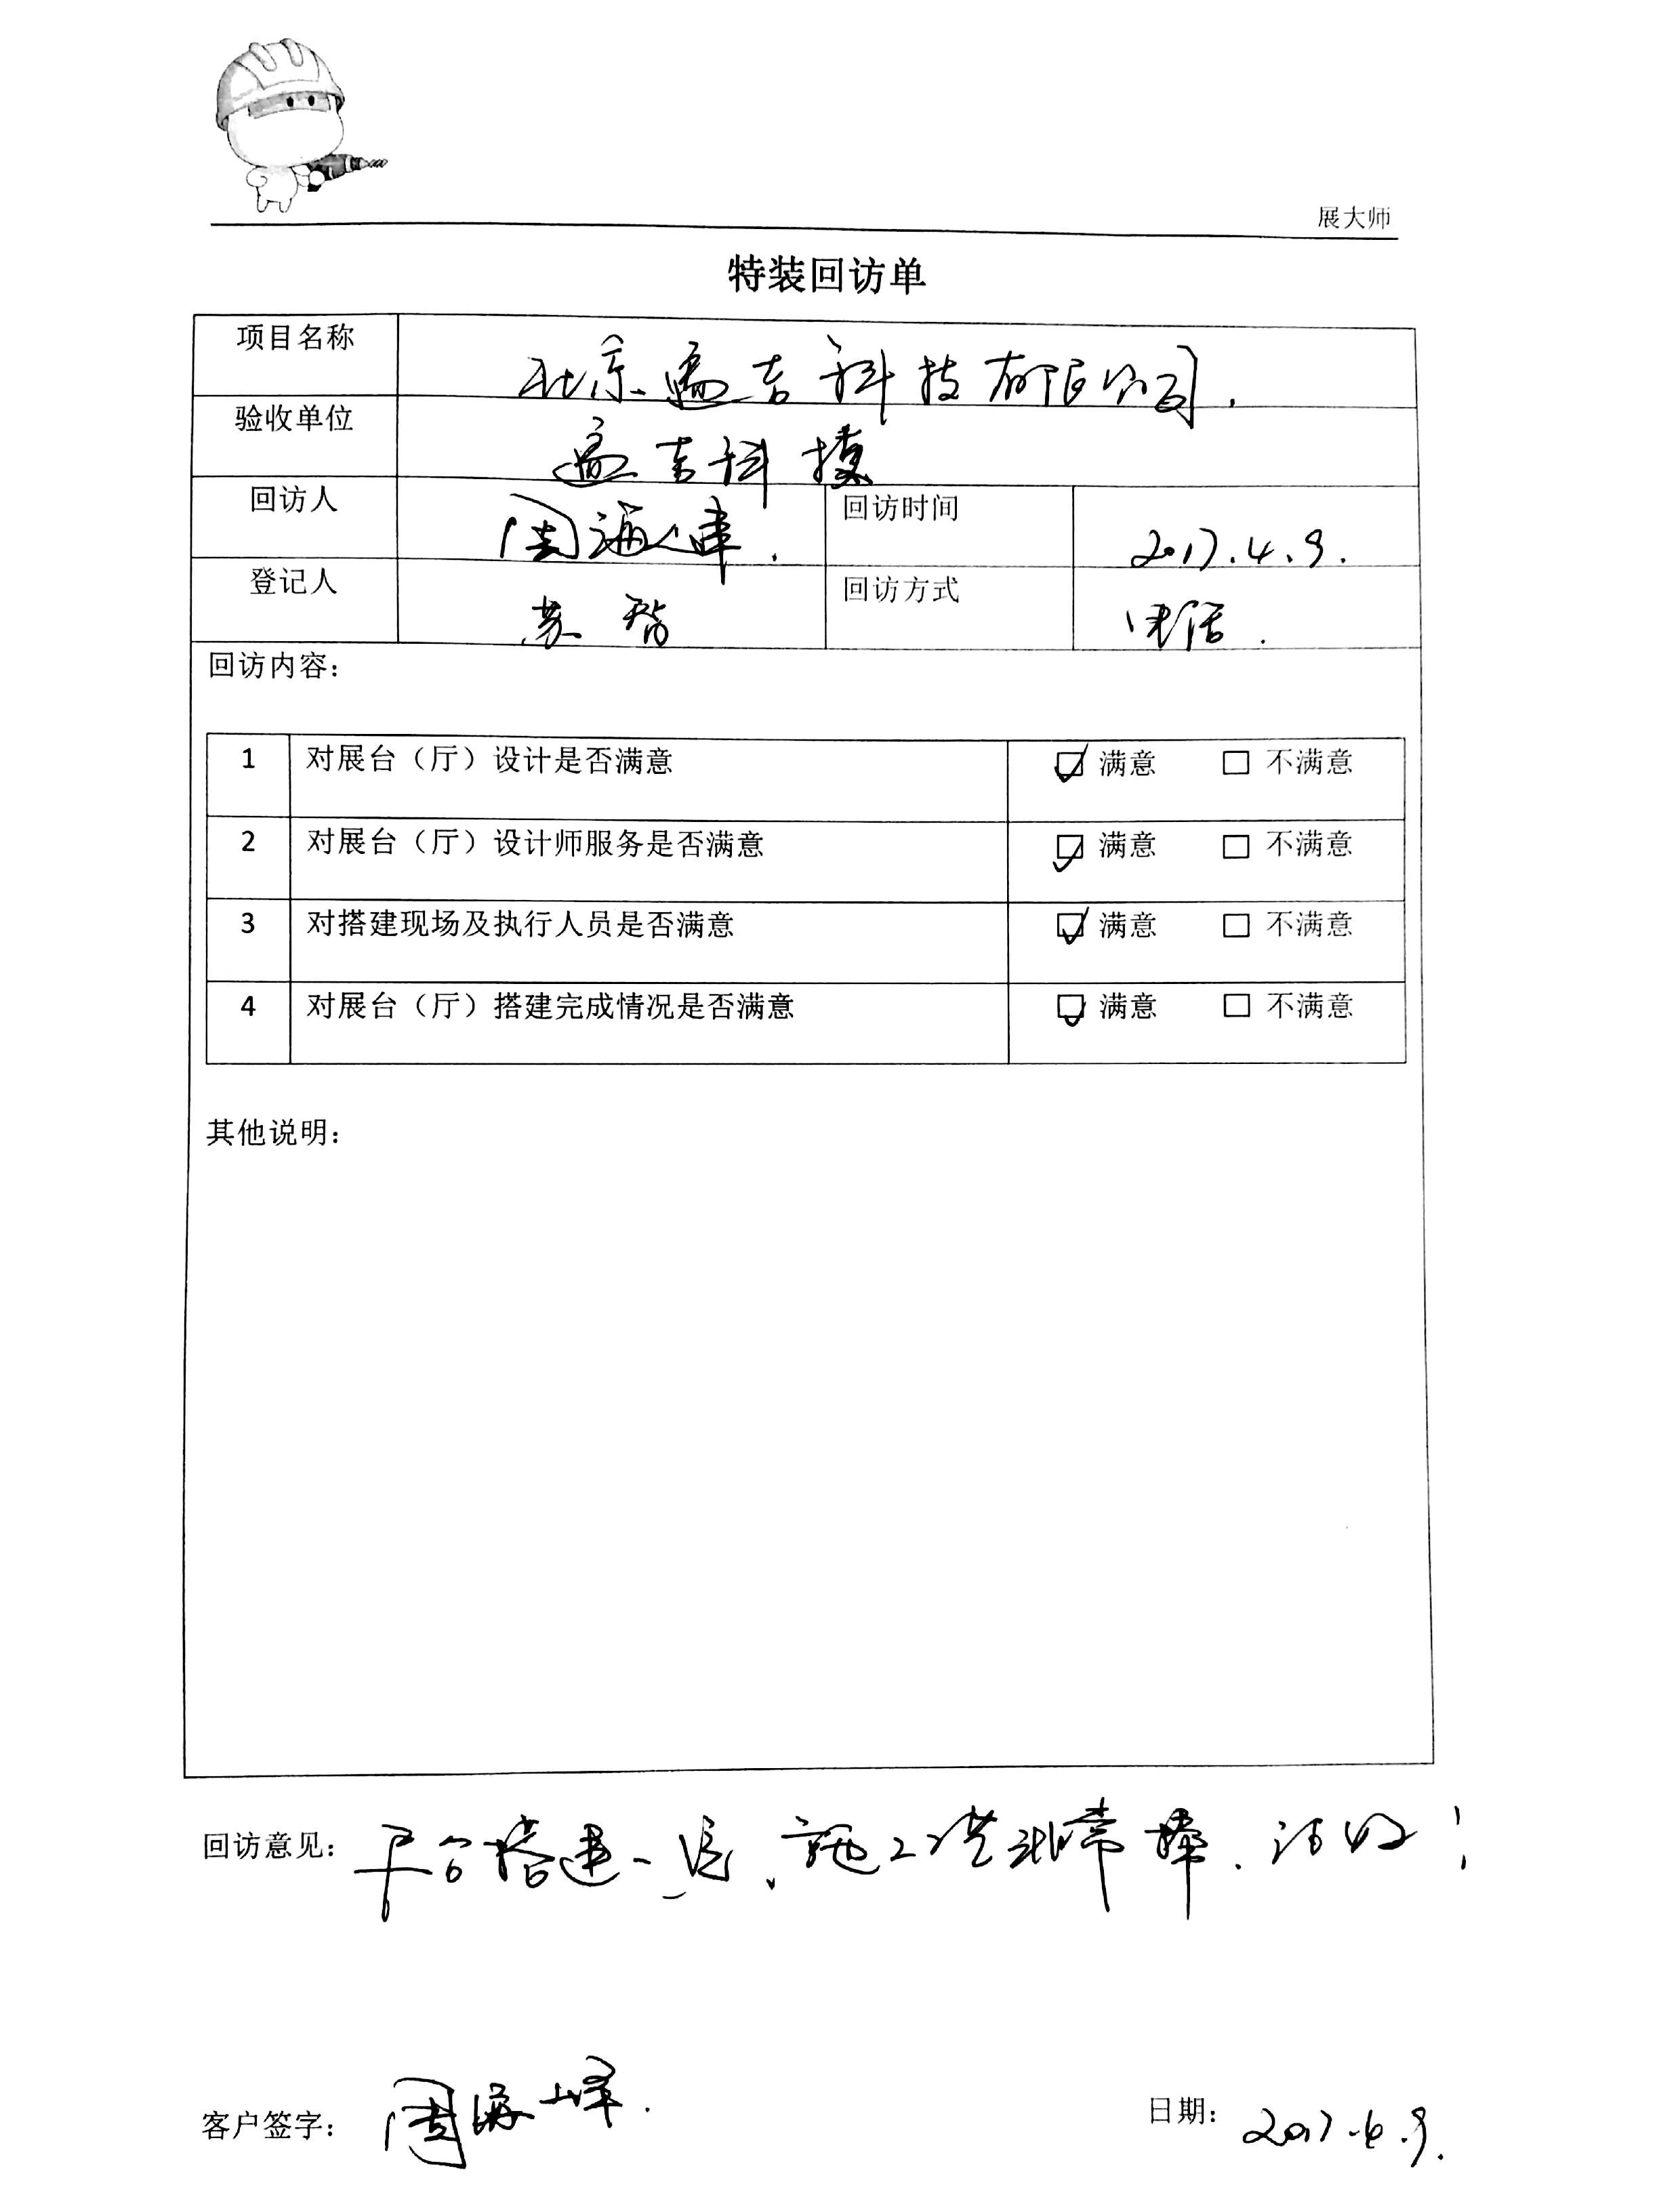 展大师
特装回访单
项目名称 北京孟吉科技有限公司.
验收单位 孟吉科技
回访人 周海峰. 回访时间 2017.4.9.
登记人 苏 回访方式 电话.
回访内容：
1 对展台（厅）设计是否满意 ☑ 满意 □ 不满意
2 对展台（厅）设计师服务是否满意 ☑ 满意 □ 不满意
3 对搭建现场及执行人员是否满意 ☑ 满意 □ 不满意
4 对展台（厅）搭建完成情况是否满意 ☑ 满意 □ 不满意
其他说明：
回访意见： 平台搭建一 施工 非常棒.
客户签字： 周海峰.
日期： 2017.4.9.